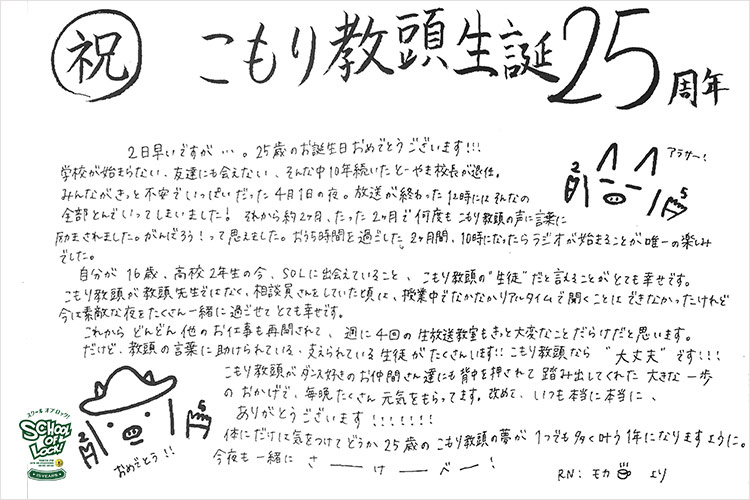 祝 こもり教頭生誕25周年
2日早いですが…。25歳のお誕生日おめでとうございます!!!
学校が始まらない、友達にも会えない、そんな中10年続いたとーやま校長が退任。
みんながきっと不安でいっぱいだった4月1日の夜。放送が終わった12時にはそんなの
全部とんでいってしまいました! それから約2ヶ月、たった2ヶ月で何度もこもり教頭の声に言葉に
励まされました。がんばろう!って思えました。おうち時間を過ごした2ヶ月間、10時になったらラジオが始まることが唯一の楽しみ
でした。
自分が16歳、高校2年生の今、SOLに出会えていること、こもり教頭の"生徒"だと言えることがとても幸せです。
こもり教頭が教頭先生ではなく、相談員さんをしていた頃は、授業中でなかなかリアルタイムで聞くことはできなかったけれど
今は素敵な夜をたくさん一緒に過ごせてとても幸せです。
これからどんどん他のお仕事も再開されて、週に4回の生放送教室もきっと大変なことだらけだと思います。
だけど、教頭の言葉に助けられている、支えられている生徒がたくさんいます!! こもり教頭なら"大丈夫"です!!!
こもり教頭がダンス好きのお仲間さん達にも背中を押されて踏み出してくれた大きな一歩
のおかげで、毎晩たくさん元気をもらってます。改めて、いつも本当に本当に、
ありがとうございます!!!!!!!
体にだけは気をつけてどうか25歳のこもり教頭の夢が1つでも多く叶う1年になりますように。
今夜も一緒に さーけーべー!
RN:モカ より
アラサー!
2 5
2 5
おめでとう!!
スクールオブロック!
SCHOOL OF LOCK!